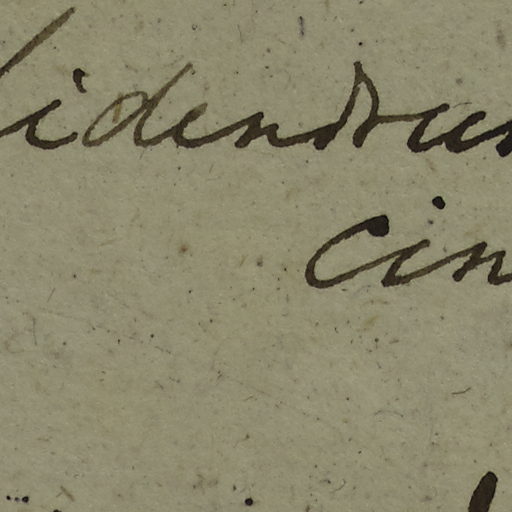 idendrum
cin